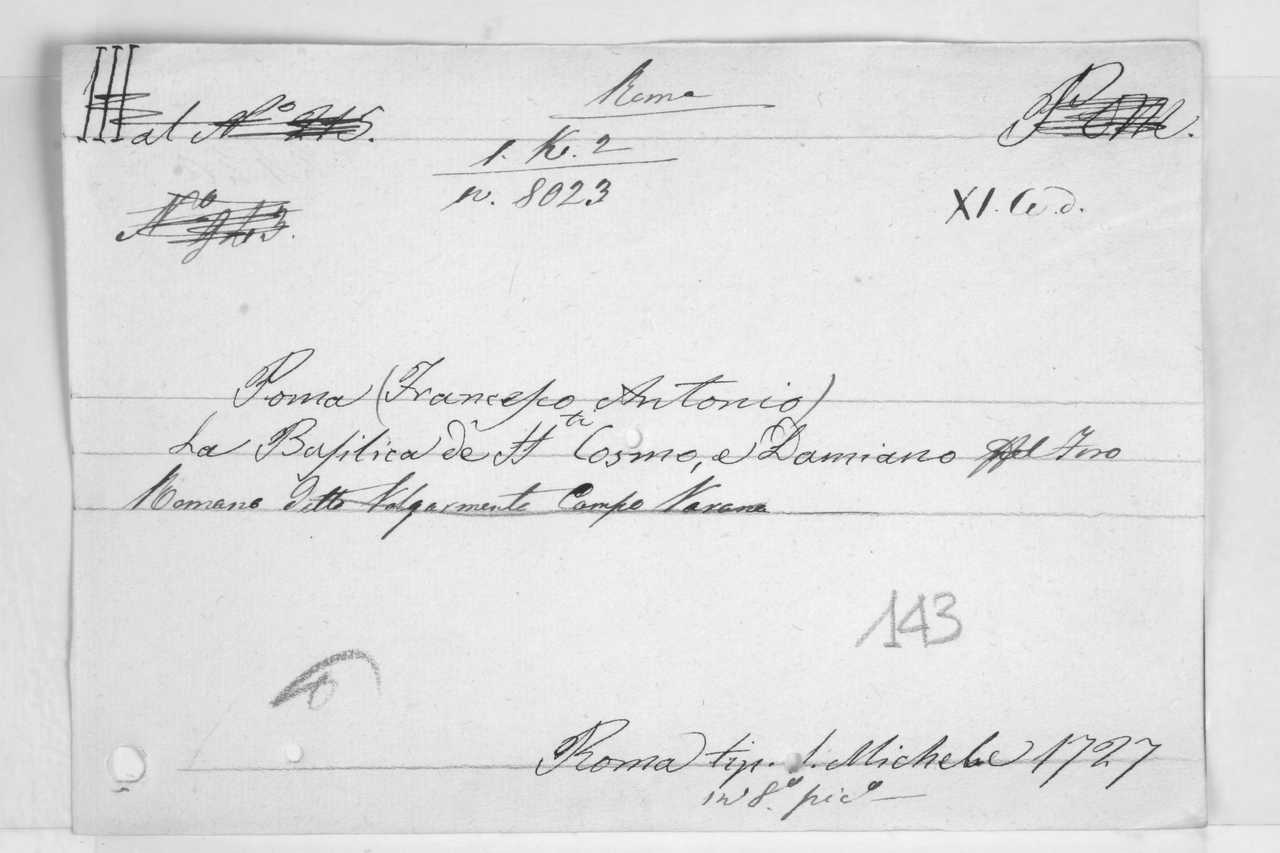 III al N.º 245.
Roma
Rom.
1. K. 2
n. 8023
XI. C. d.
Roma (Francesco Antonio)
La Basilica de SS.ti Cosmo, e Damiano nel Foro
Romano ditto Volgarmente Campo Vaxano
143
Roma tip. S. Michele 1727
in 8.º pic.º